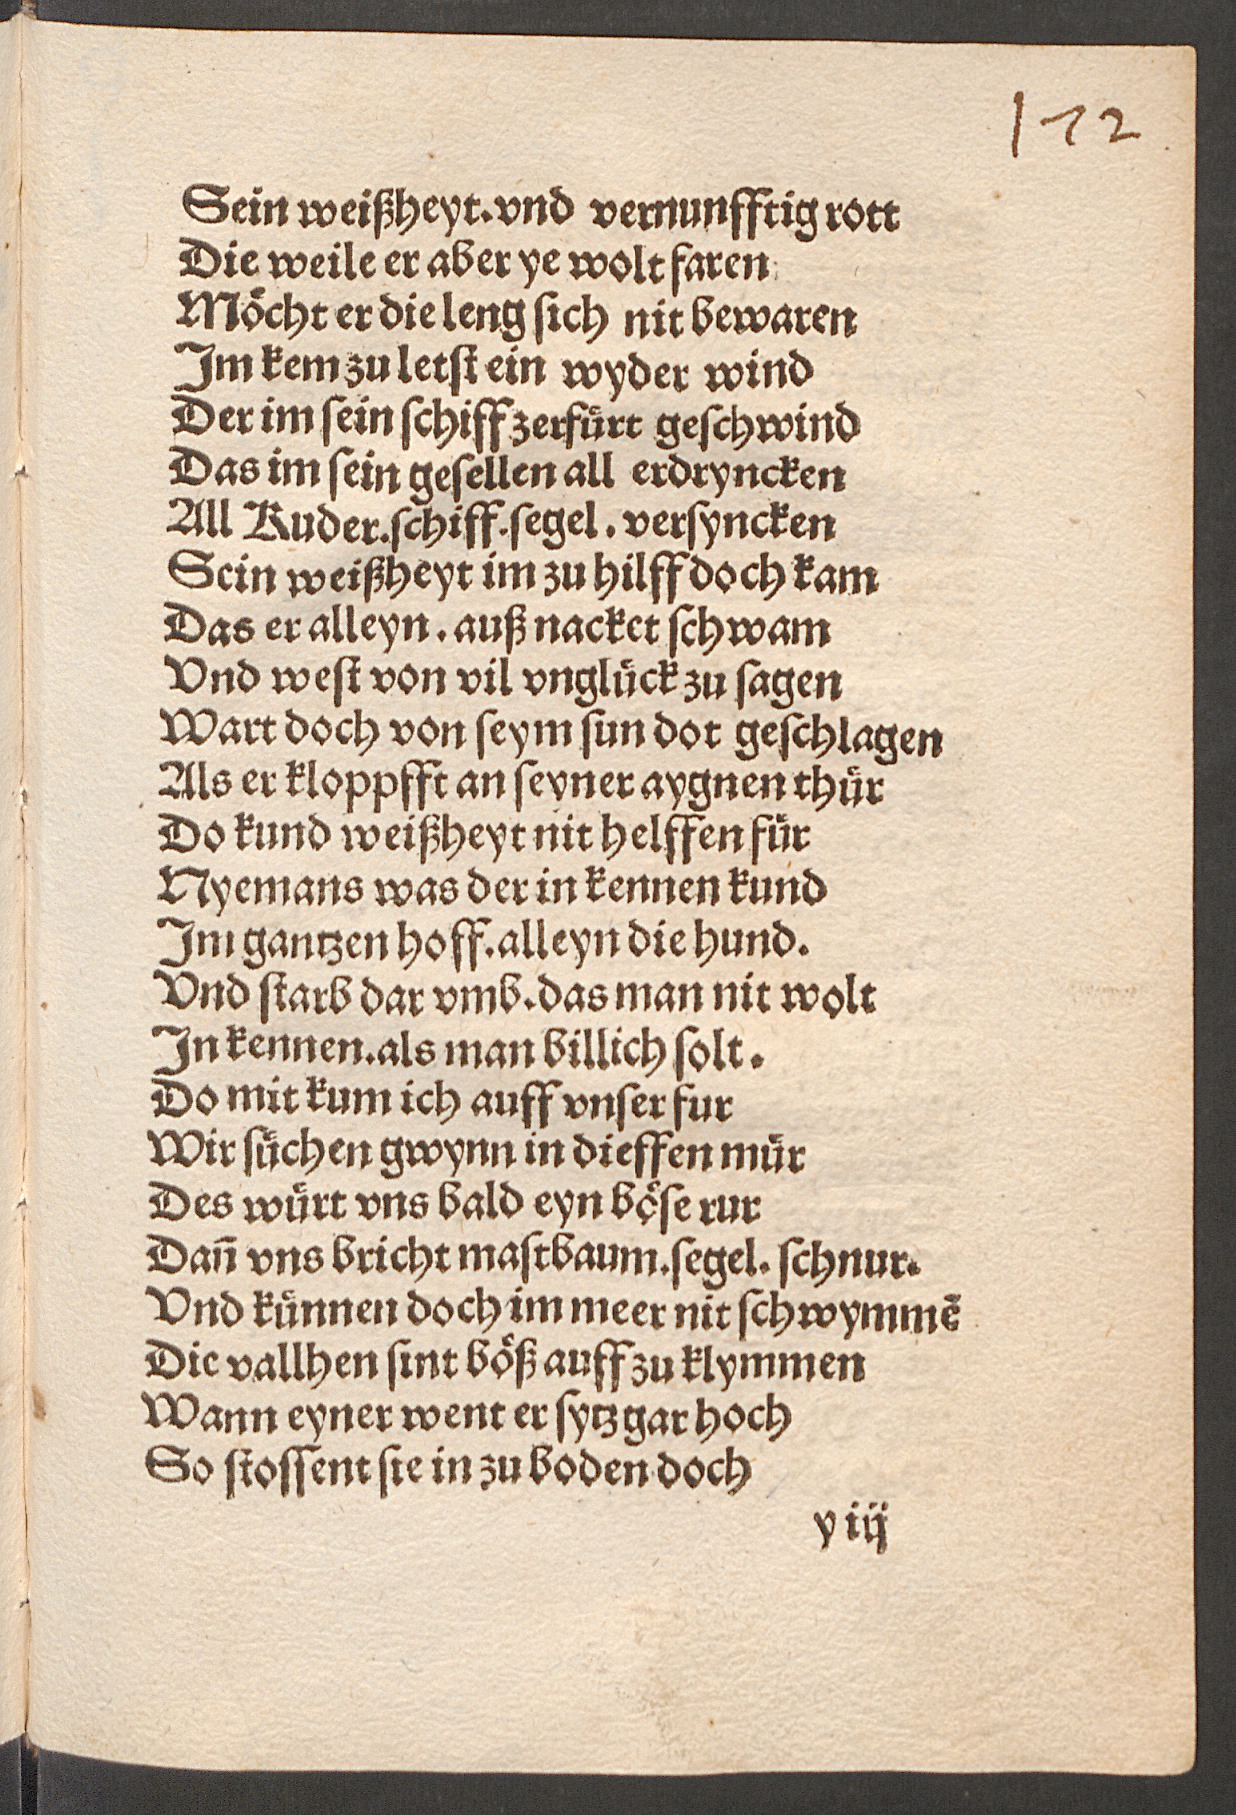 172
Sein weißheyt. vnd vernunfftig rott
Die weile er aber ye wolt faren
Möcht er die leng sich nit bewaren
Im kem zu letst ein wyder wind
Der im sein schiff zerfürt geschwind
Das im sein gesellen all erdryncken
All Ruder. schiff. segel. versyncken
Sein weißheyt im zu hilff doch kam
Das er alleyn. auß nacket schwam
Vnd west von vil vnglück zu sagen
Wart doch von seym sun dot geschlagen
Als er kloppfft an seyner aygnen thür
Do kund weißheyt nit helffen für
Nyemans was der in kennen kund
Im gantzen hoff. alleyn die hund.
Vnd starb dar vmb. das man nit wolt
In kennen. als man billich solt.
Do mit kum ich auff vnser fur
Wir süchen gwynn in dieffen mür
Des würt vns bald eyn böse rur
Dañ vns bricht mastbaum. segel. schnur.
Vnd künnen doch im meer nit schwymmē
Die vallhen sint böß auff zu klymmen
Wann eyner went er sytz gar hoch
So stossent sie in zu boden doch
y iij